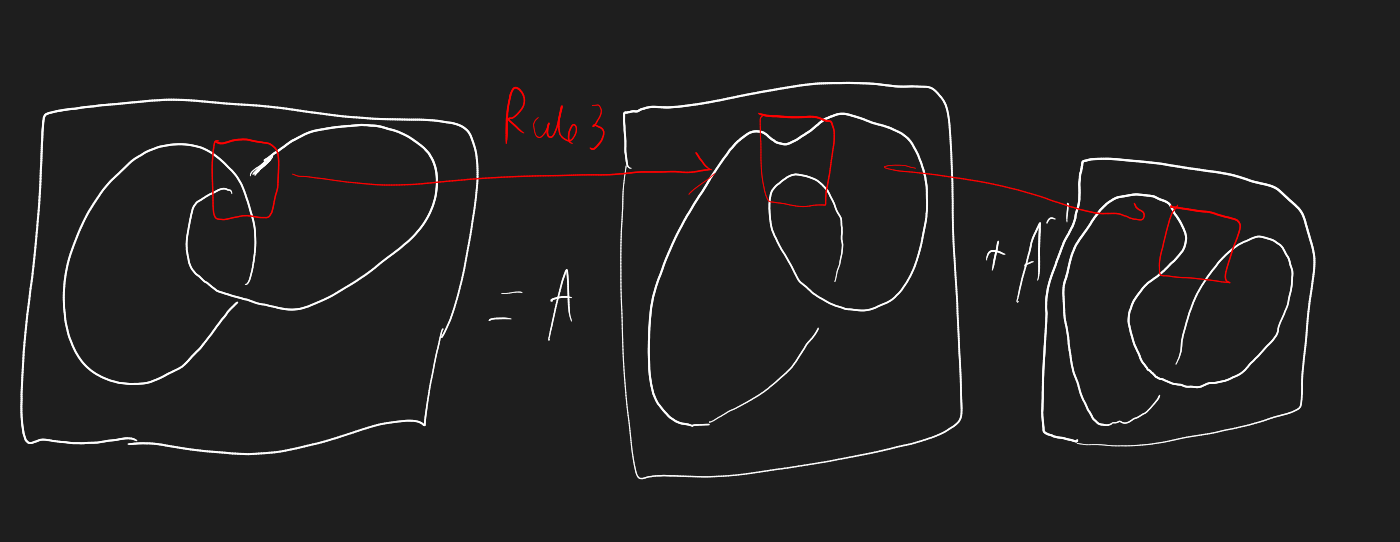 Rule3
= A + A⁻¹